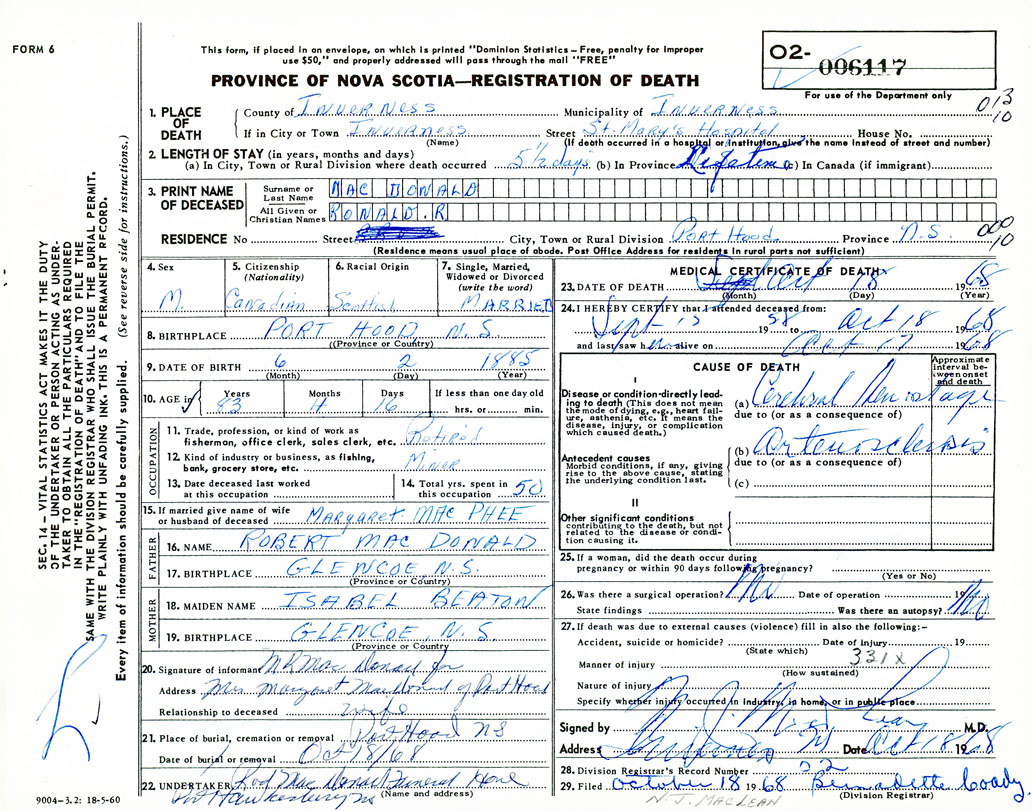 FORM 6
This form, if placed in an envelope, on which is printed "Dominion Statistics – Free, penalty for improper
use $50," and properly addressed will pass through the mail "FREE"
PROVINCE OF NOVA SCOTIA—REGISTRATION OF DEATH
O2- 006117
For use of the Department only
013
10
1. PLACE OF DEATH
County of INVERNESS Municipality of INVERNESS
If in City or Town INVERNESS Street St. Mary's Hospital House No.
(Name) (If death occurred in a hospital or institution, give the name instead of street and number)
2. LENGTH OF STAY (in years, months and days)
(a) In City, Town or Rural Division where death occurred 5½ days (b) In Province Lifetime (c) In Canada (if immigrant)
3. PRINT NAME OF DECEASED
Surname or Last Name MAC DONALD
All Given or Christian Names RONALD.R
RESIDENCE No Street City, Town or Rural Division Port Hood Province N.S.
000
10
(Residence means usual place of abode. Post Office Address for residents in rural parts not sufficient)
4. Sex M.
5. Citizenship (Nationality) Canadian
6. Racial Origin Scottish
7. Single, Married, Widowed or Divorced (write the word) MARRIED
8. BIRTHPLACE PORT HOOD, N.S.
(Province or Country)
9. DATE OF BIRTH 6 2 1885
(Month) (Day) (Year)
10. AGE in Years 83 Months 4 Days 16 If less than one day old hrs. or min.
OCCUPATION
11. Trade, profession, or kind of work as fisherman, office clerk, sales clerk, etc. Retired
12. Kind of industry or business, as fishing, bank, grocery store, etc. Miner
13. Date deceased last worked at this occupation
14. Total yrs. spent in this occupation 50
15. If married give name of wife or husband of deceased MARGARET MAC PHEE
FATHER
16. NAME ROBERT MAC DONALD
17. BIRTHPLACE GLENCOE, N.S.
(Province or Country)
MOTHER
18. MAIDEN NAME ISABEL BEATON
19. BIRTHPLACE GLENCOE, N.S.
(Province or Country
20. Signature of informant
Address Mrs. Margaret MacDonald of Port Hood
Relationship to deceased wife
21. Place of burial, cremation or removal Port Hood NS
Date of burial or removal
22. UNDERTAKER Rod Mac Donald Funeral Home
Port Hawkesbury NS (Name and address)
9004–3.2: 18-5-60
MEDICAL CERTIFICATE OF DEATH
23. DATE OF DEATH Oct 18 1968
(Month) (Day) (Year)
24. I HEREBY CERTIFY that I attended deceased from:
Sept 1958 to Oct 18 1968
and last saw him alive on Oct 17 1968
CAUSE OF DEATH
Approximate interval between onset and death
I
Disease or condition directly leading to death (This does not mean the mode of dying, e.g., heart failure, asthenia, etc. It means the disease, injury, or complication which caused death.)
(a) Cerebral Hemorrhage
due to (or as a consequence of)
(b) Arteriosclerosis
due to (or as a consequence of)
(c)
Antecedent causes
Morbid conditions, if any, giving rise to the above cause, stating the underlying condition last.
II
Other significant conditions contributing to the death, but not related to the disease or condition causing it.
25. If a woman, did the death occur during pregnancy or within 90 days following pregnancy?
(Yes or No)
26. Was there a surgical operation? No Date of operation 19
State findings Was there an autopsy? No
27. If death was due to external causes (violence) fill in also the following:–
Accident, suicide or homicide? Date of injury 19
(State which) 331X
Manner of injury
(How sustained)
Nature of injury
Specify whether injury occurred in industry, in home, or in public place
Signed by M.D.
Address Inverness Date Oct 18 1968
28. Division Registrar's Record Number 22
29. Filed October 18 1968 Bernadette Coady
(Division Registrar)
N. J. MACLEAN
SEC. 14 – VITAL STATISTICS ACT MAKES IT THE DUTY
OF THE UNDERTAKER OR PERSON ACTING AS UNDER-
TAKER TO OBTAIN ALL THE PARTICULARS REQUIRED
IN THE "REGISTRATION OF DEATH" AND TO FILE THE
SAME WITH THE DIVISION REGISTRAR WHO SHALL ISSUE THE BURIAL PERMIT.
WRITE PLAINLY WITH UNFADING INK. THIS IS A PERMANENT RECORD.
Every item of information should be carefully supplied. (See reverse side for instructions.)